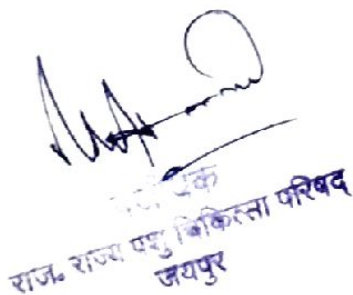 राज. राज्य पशु चिकित्सा परिषद
जयपुर